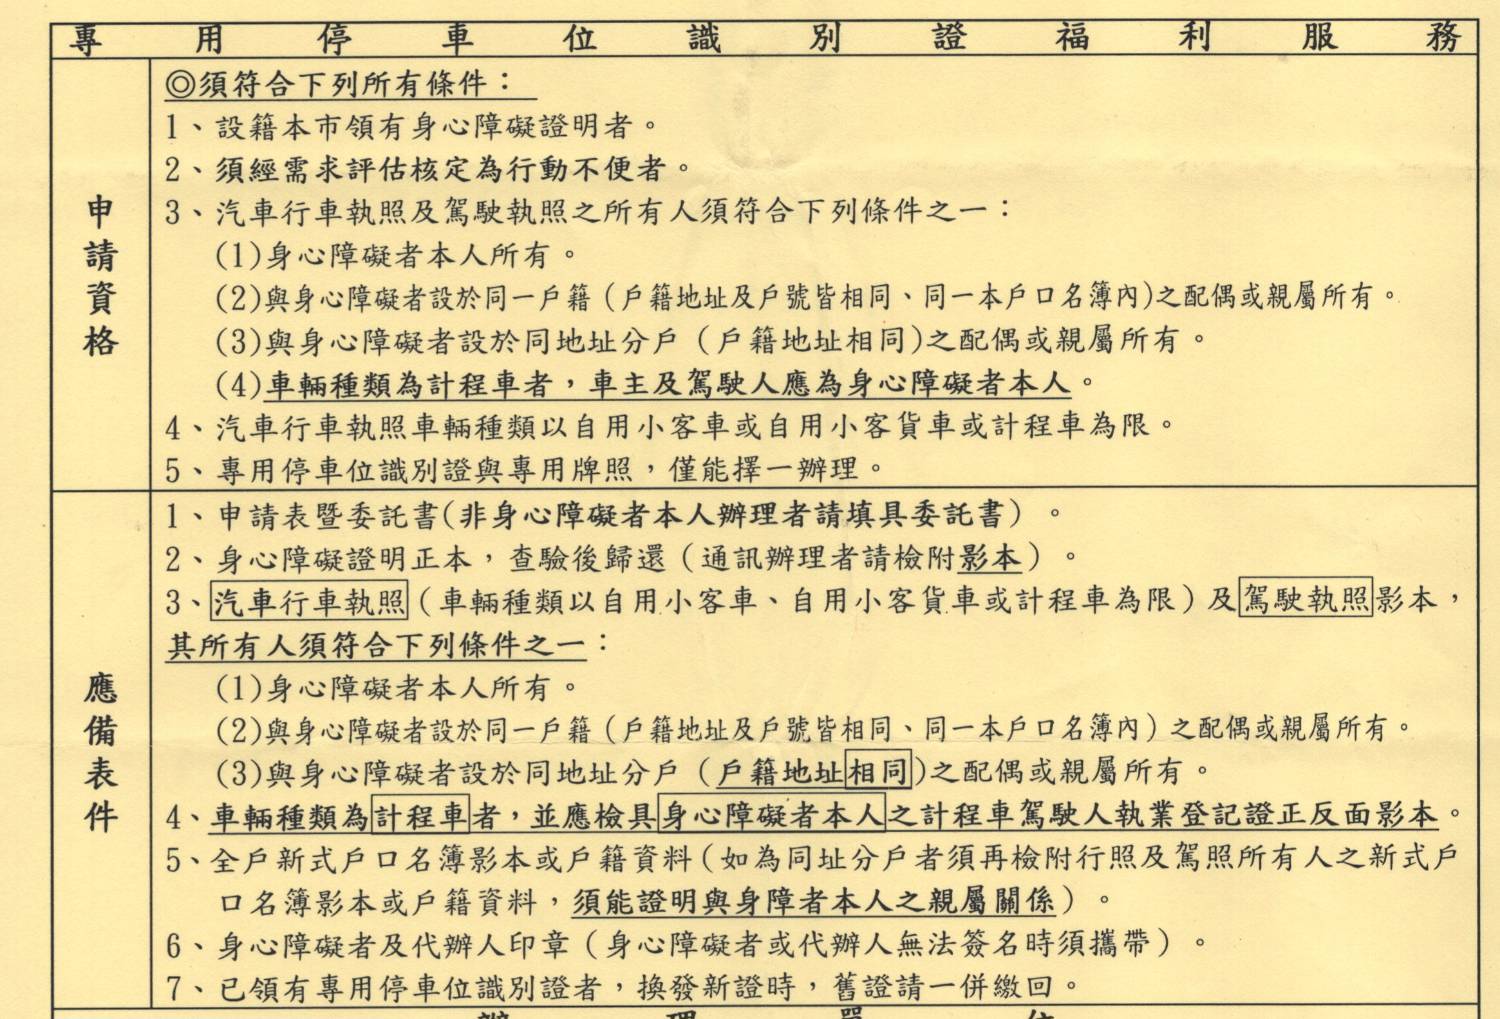 專用停車位識別證福利服務
申請資格
◎須符合下列所有條件：
1、設籍本市領有身心障礙證明者。
2、須經需求評估核定為行動不便者。
3、汽車行車執照及駕駛執照之所有人須符合下列條件之一：
(1)身心障礙者本人所有。
(2)與身心障礙者設於同一戶籍（戶籍地址及戶號皆相同、同一本戶口名簿內)之配偶或親屬所有。
(3)與身心障礙者設於同地址分戶（戶籍地址相同)之配偶或親屬所有。
(4)車輛種類為計程車者，車主及駕駛人應為身心障礙者本人。
4、汽車行車執照車輛種類以自用小客車或自用小客貨車或計程車為限。
5、專用停車位識別證與專用牌照，僅能擇一辦理。
應備表件
1、申請表暨委託書(非身心障礙者本人辦理者請填具委託書）。
2、身心障礙證明正本，查驗後歸還（通訊辦理者請檢附影本）。
3、汽車行車執照（車輛種類以自用小客車、自用小客貨車或計程車為限）及駕駛執照影本，
其所有人須符合下列條件之一：
(1)身心障礙者本人所有。
(2)與身心障礙者設於同一戶籍（戶籍地址及戶號皆相同、同一本戶口名簿內）之配偶或親屬所有。
(3)與身心障礙者設於同地址分戶（戶籍地址相同)之配偶或親屬所有。
4、車輛種類為計程車者，並應檢具身心障礙者本人之計程車駕駛人執業登記證正反面影本。
5、全戶新式戶口名簿影本或戶籍資料(如為同址分戶者須再檢附行照及駕照所有人之新式戶
口名簿影本或戶籍資料，須能證明與身障者本人之親屬關係）。
6、身心障礙者及代辦人印章（身心障礙者或代辦人無法簽名時須攜帶）。
7、已領有專用停車位識別證者，換發新證時，舊證請一併繳回。
辦理單位